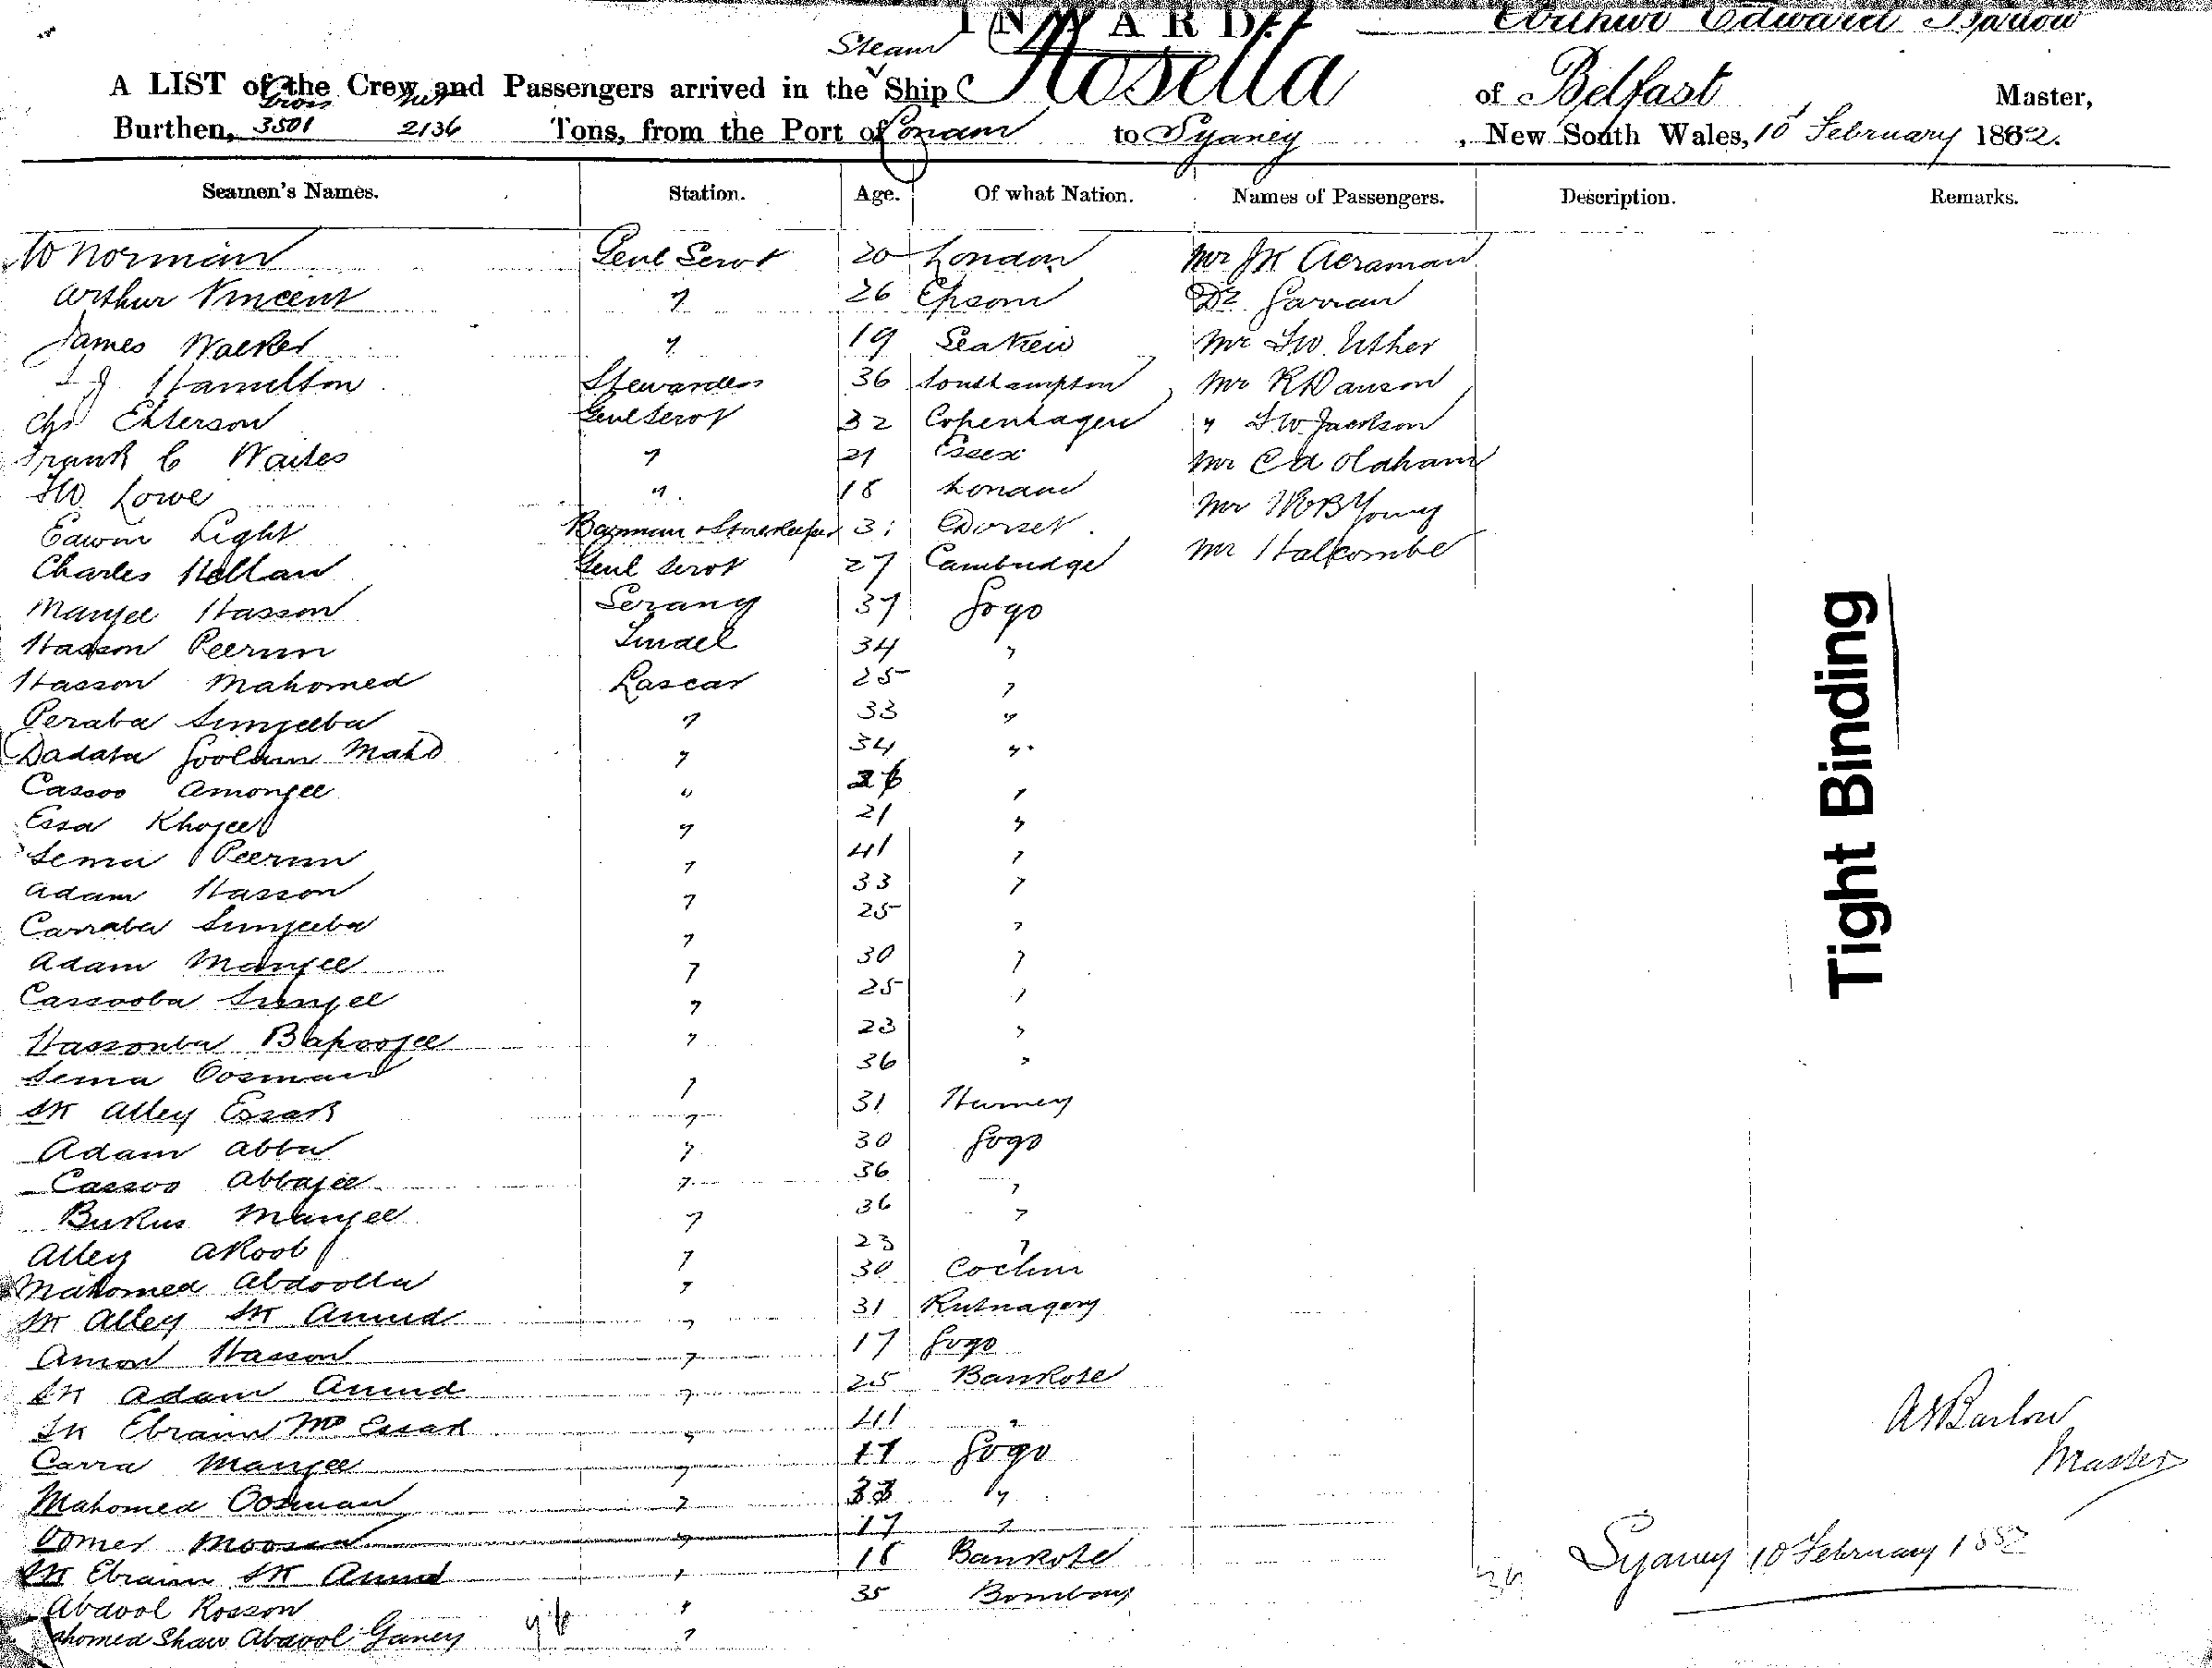 INWARD.
Arthur Edward Barlow
Steam
A LIST of the Crew and Passengers arrived in the Ship Rosetta of Belfast Master,
Gross Net
Burthen, 3501 2136 Tons, from the Port of London to Sydney, New South Wales, 10 February 1882.
Seamen's Names. Station. Age. Of what Nation. Names of Passengers. Description. Remarks.
W Norman Genl Servt 20 London Mr JK Acraman
Arthur Vincent " 26 Epsom Dr Garran
James Walker " 19 Mr FW. Usher
Hamilton Stewardess 36 Southampton Mr R Dawson
Chs Genl Servt 32 Copenhagen " FW Jackson
Frank C Waites " 21 Essex Mr CA Oldham
FW. Lowe " 18 London Mr WEB Young
Edwin Light Barman & Storekeeper 31 Dorset. Mr Halcombe
Charles Genl Servt 27 Cambridge
Manjee Hasson Serang 37 Gogo
Hasson Peerun Tindel 34 "
Hasson Mahomed Lascar 25 "
Peraba Sumjeeba " 33 "
Dadata Goolam Mahd " 34 "
Cassoo Amonjee " "
Essa Khojee " 21 "
Sema Peerun " 41 "
Adam Hasson " 33 "
Carraba Sumjeeba " 25 "
Adam Manjee " 30 "
Cassooba Sumjee " 25 "
Hassonba Bapoojee " 23 "
Sema Oosman " 36 "
SK Alley Essak " 31 Hurney
Adam Abba " 30 Gogo
Cassoo Abbajee " 36 "
Bukus Manjee " 36 "
Alley Akoob " 23 "
Mahomed Abdoolla " 30 Cochin
SK Alley SK Amud " 31 Rutnagery
Amod Hasson " 17 Gogo
SK Adam Amud " 25 Bankote
SK Ebraim Md Essak " 41 "
Carra Manjee " 17 Gogo
Mahomed Oosman " 33 "
Oomer Moosa " 17 "
SK Ebraim SK Amud " 18 Bankote
Abdool Rosson " 35 Bombay
Mahomed Shaw Abdool Ganey "
Tight Binding
AE Barlow
Master
Sydney 10 February 1882